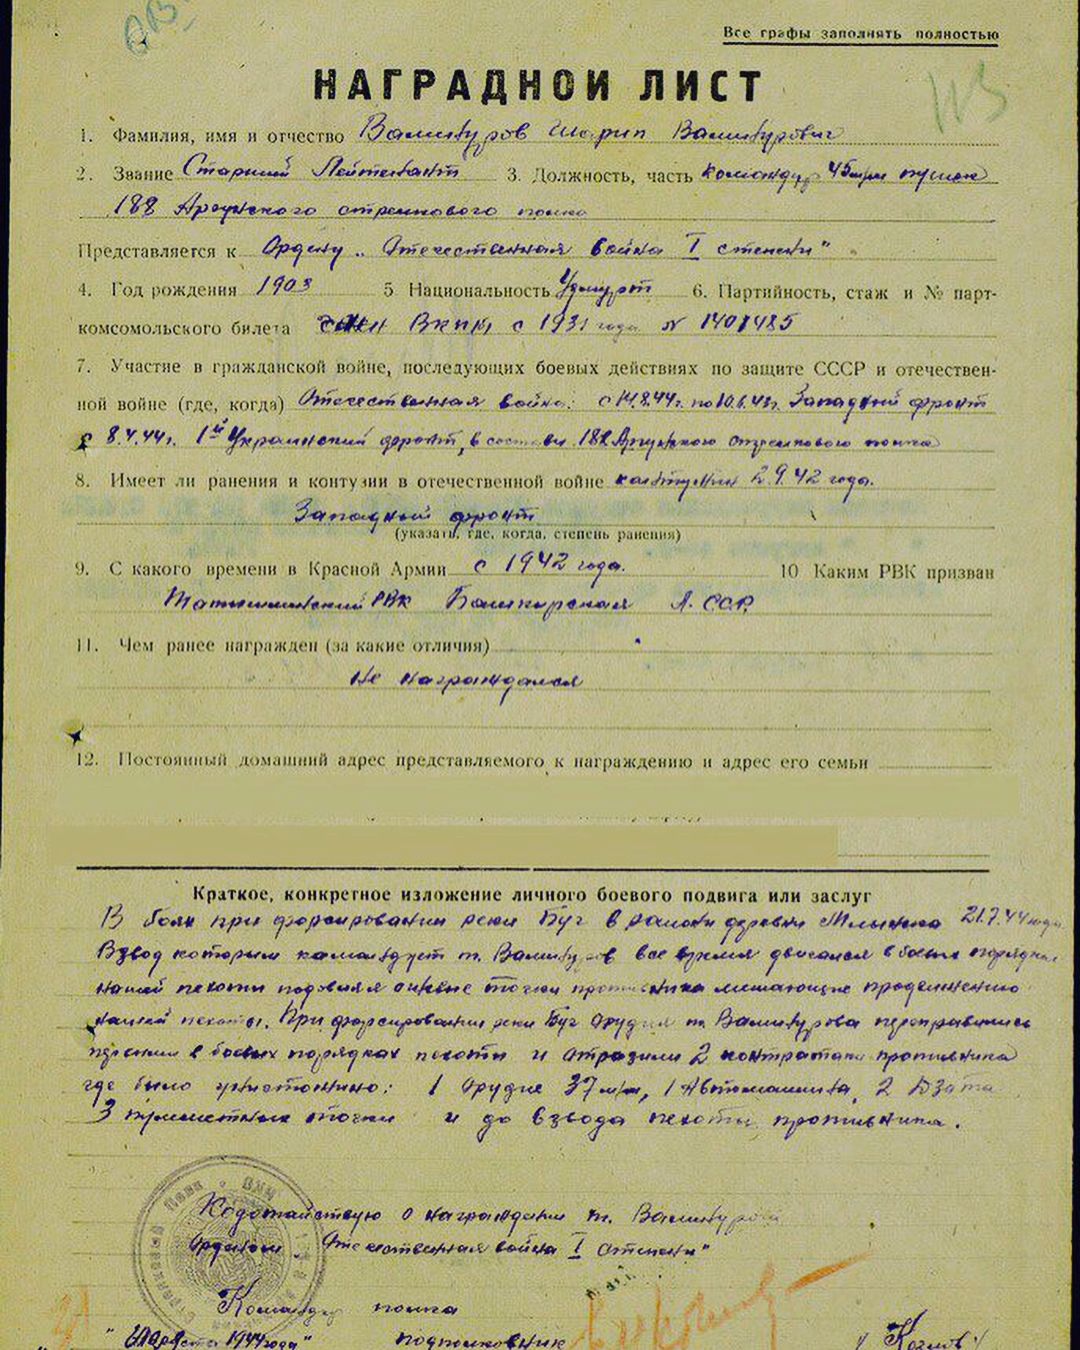 Все графы заполнять полностью
113
НАГРАДНОЙ ЛИСТ
1. Фамилия, имя и отчество Валинуров Шарип Валинурович
2. Звание Старший Лейтенант 3. Должность, часть командир 45мм пушек
188 Аргунского стрелкового полка
Представляется к Ордену „Отечественная война I степени"
4. Год рождения 1903 5 Национальность Удмурт 6. Партийность, стаж и № парт-
комсомольского билета член ВКП(б) с 1931 года N 1401485
7. Участие в гражданской войне, последующих боевых действиях по защите СССР и отечествен-
ной войне (где, когда) Отечественная война: Западный фронт
с 8.4.44г. 1й Украинский фронт, в составе 188 Аргунского стрелкового полка
8. Имеет ли ранения и контузии в отечественной войне контузия 2.9.42 года.
Западный фронт
(указать, где, когда, степень ранения)
9. С какого времени в Красной Армии с 1942 года. 10 Каким РВК призван
РВК Башкирская А.ССР.
11. Чем ранее награжден (за какие отличия)
Не награждался
12. Постоянный домашний адрес представляемого к награждению и адрес его семьи
Краткое, конкретное изложение личного боевого подвига или заслуг
В боях при форсировании реки Буг в районе деревни 21.7.44 года
Взвод которым командует т. Валинуров все время двигался в боевых порядках
нашей пехоты подавляя огневые точки противника мешающие продвижению
нашей пехоты. При форсировании реки Буг орудия т. Валинурова переправились
первыми в боевых порядках пехоты и отразили 2 контратаки противника
где было уничтожено: 1 орудие 37 м/м, 1 Автомашина, 2 Дзота
3 пулеметных точки и до взвода пехоты противника.
Ходотайствую о награждении т. Валинурова
Орденом „Отечественная война I степени"
Командир полка
1944 года" подполковник / Козлов /